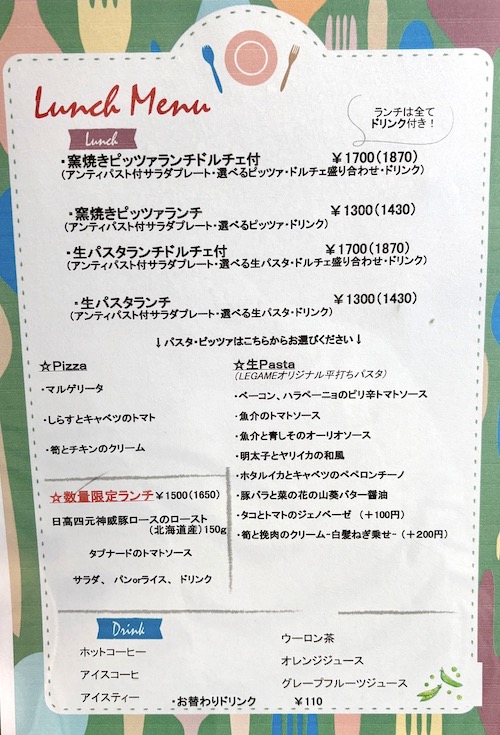 Lunch Menu
ランチは全て
ドリンク付き！
Lunch
・窯焼きピッツァランチドルチェ付 ￥1700(1870)
(アンティパスト付サラダプレート・選べるピッツァ・ドルチェ盛り合わせ・ドリンク)
・窯焼きピッツァランチ ￥1300(1430)
(アンティパスト付サラダプレート・選べるピッツァ・ドリンク)
・生パスタランチドルチェ付 ￥1700(1870)
(アンティパスト付サラダプレート・選べる生パスタ・ドルチェ盛り合わせ・ドリンク)
・生パスタランチ ￥1300(1430)
(アンティパスト付サラダプレート・選べる生パスタ・ドリンク)
↓パスタ・ピッツァはこちらからお選びください↓
☆Pizza
・マルゲリータ
・しらすとキャベツのトマト
・筍とチキンのクリーム
☆生Pasta
(LEGAMEオリジナル平打ちパスタ)
・ベーコン、ハラペーニョのピリ辛トマトソース
・魚介のトマトソース
・魚介と青しそのオーリオソース
・明太子とヤリイカの和風
・ホタルイカとキャベツのペペロンチーノ
・豚バラと菜の花の山葵バター醤油
・タコとトマトのジェノベーゼ （＋100円）
・筍と挽肉のクリーム-白髪ねぎ乗せ- （＋200円）
☆数量限定ランチ ￥1500(1650)
日高四元神威豚ロースのロースト
(北海道産)150g
タプナードのトマトソース
サラダ、 パンorライス、 ドリンク
Drink
ホットコーヒー
アイスコーヒ
アイスティー
ウーロン茶
オレンジジュース
グレープフルーツジュース
・お替わりドリンク ￥110